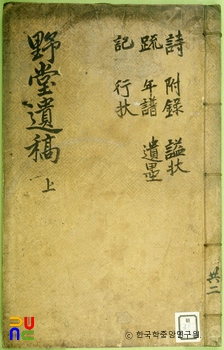 野堂遺稿 上
詩 附錄 諡狀
疏 年譜 遺墨
記 行狀
共二
PUNC
ⓒ 한국학중앙연구원